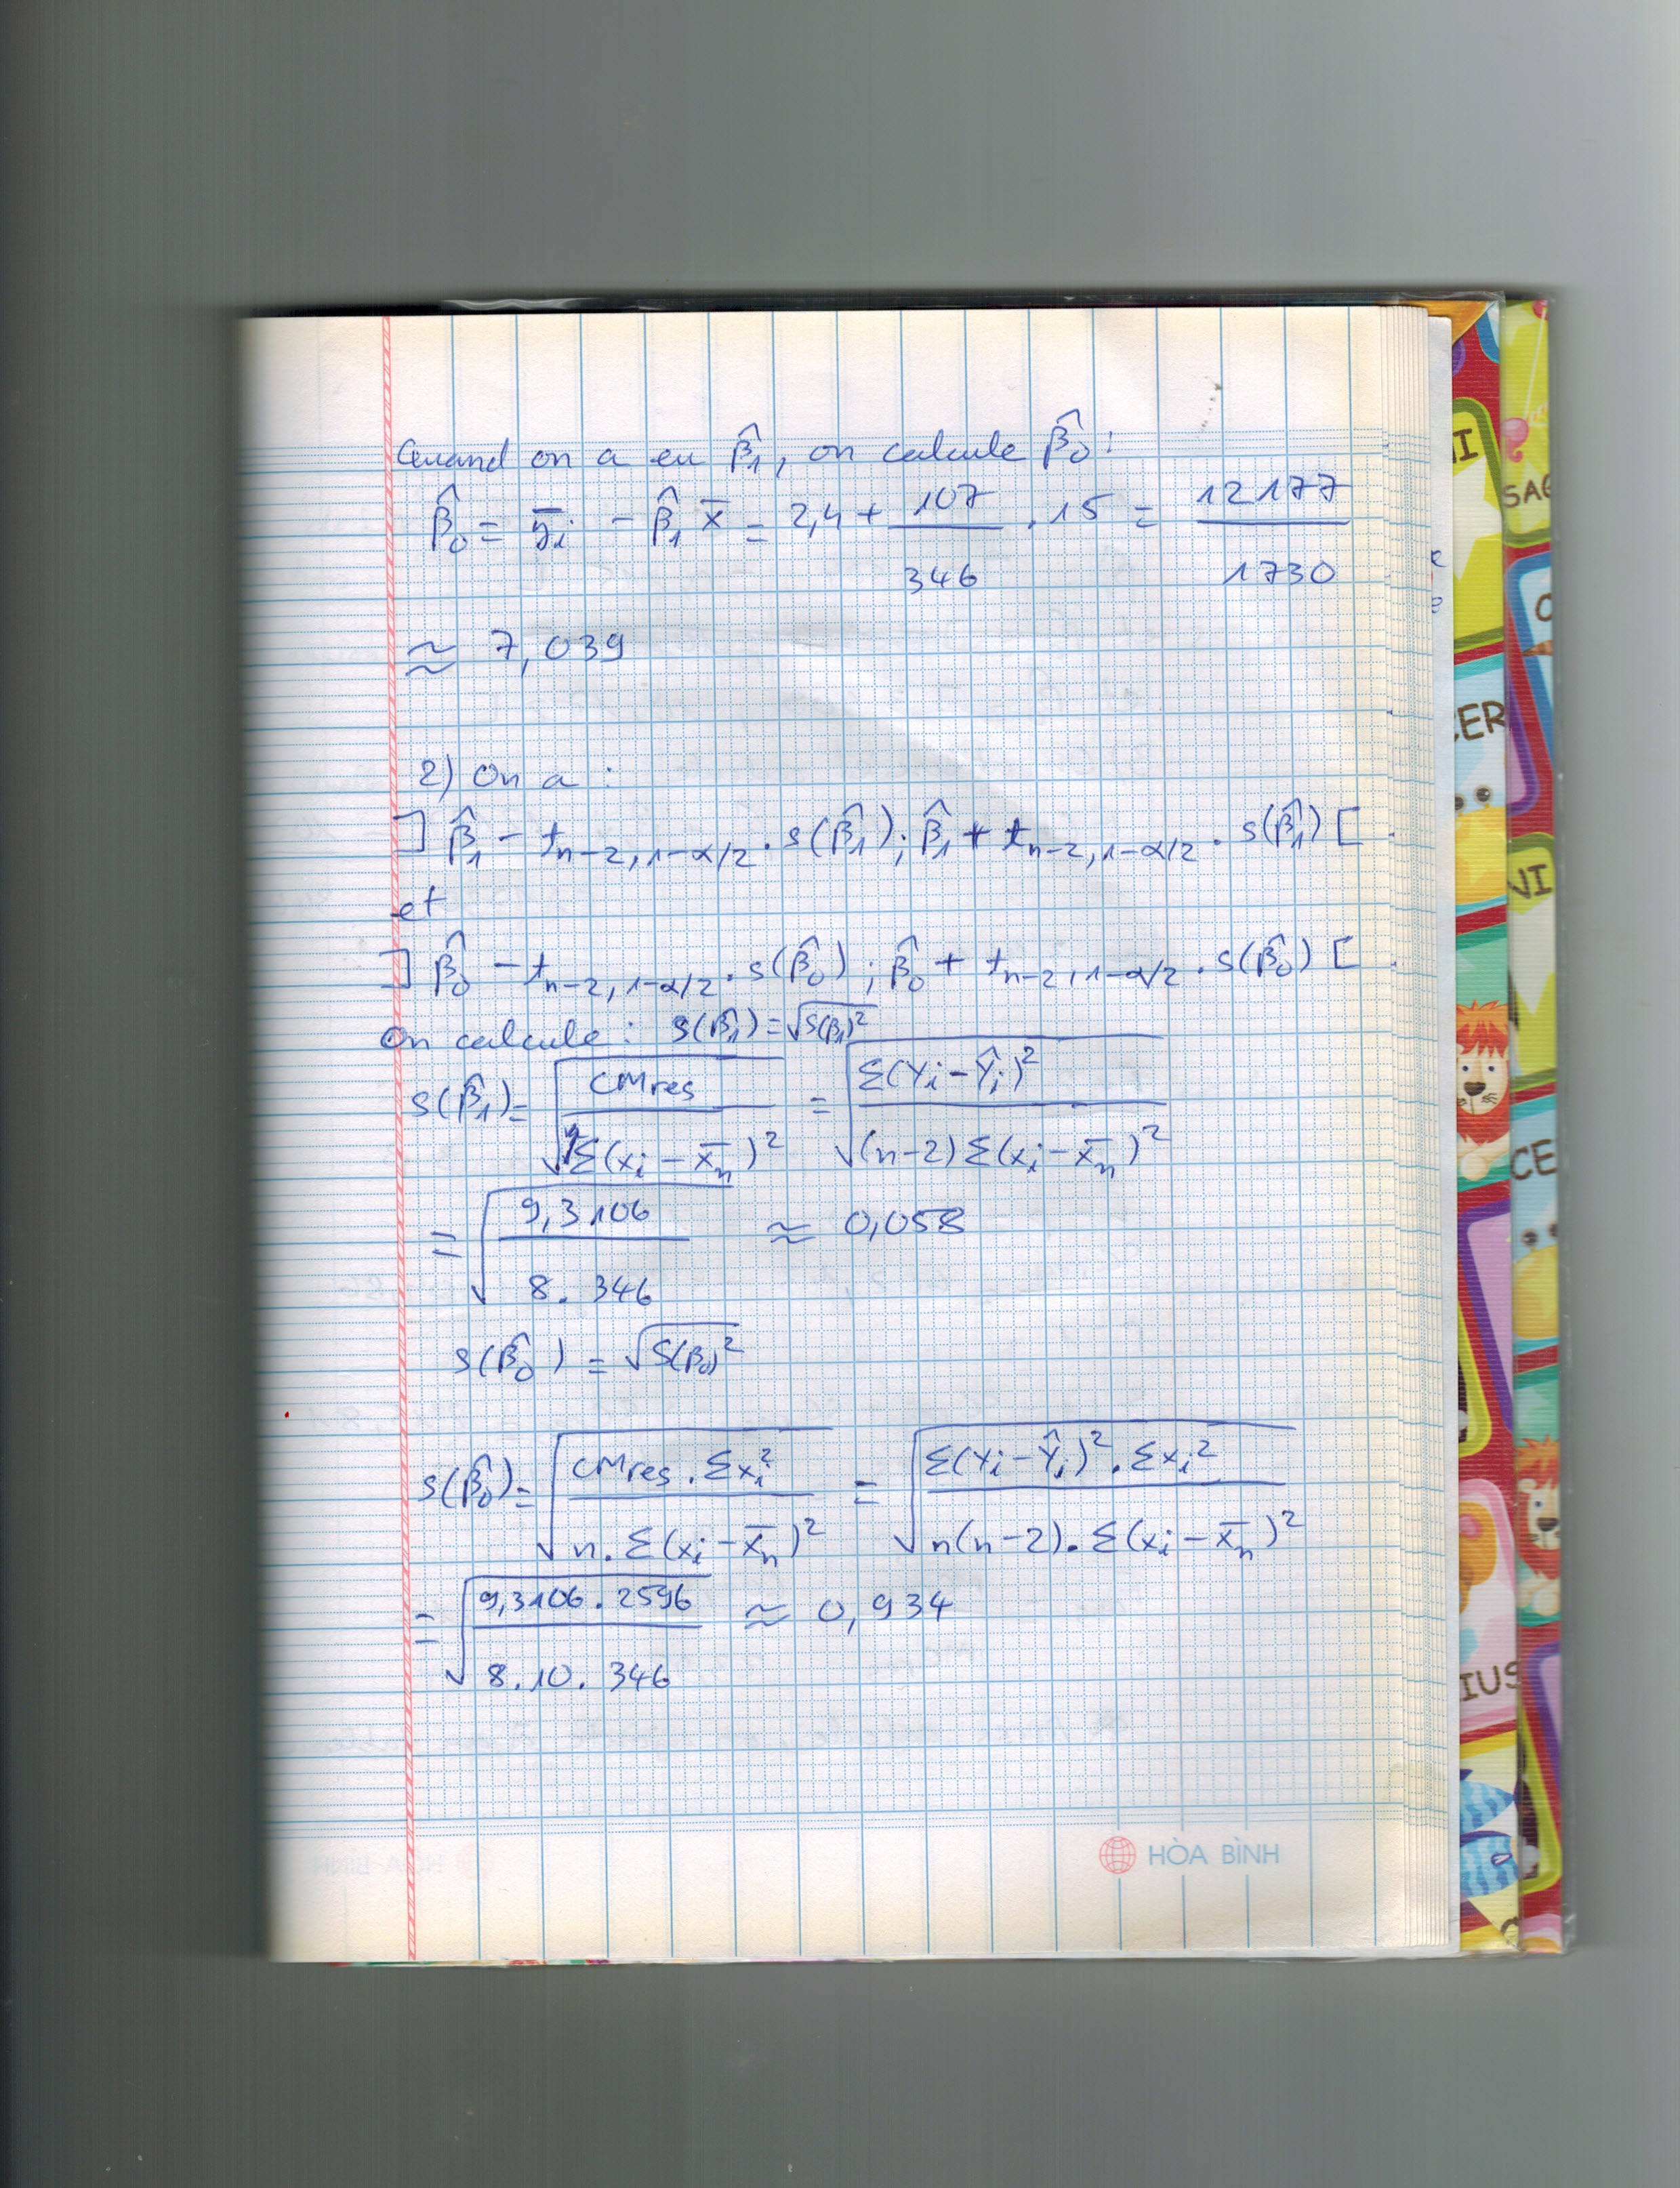 Quand on a eu β̂₁, on calcule β̂₀ :
β̂₀ = ȳᵢ - β̂₁ x̄ = 2,4 + 107/346 . 15 = 12177/1730
≈ 7,039
2) On a :
] β̂₁ - t_{n-2, 1-α/2} . s(β̂₁) ; β̂₁ + t_{n-2, 1-α/2} . s(β̂₁) [
et
] β̂₀ - t_{n-2, 1-α/2} . s(β̂₀) ; β̂₀ + t_{n-2, 1-α/2} . s(β̂₀) [
On calcule : s(β̂₁) = √(s(β₁)²)
s(β̂₁) = √(CMres / Σ(xᵢ - x̄ₙ)²) = √(Σ(Yᵢ - Ŷᵢ)² / (n-2) Σ(xᵢ - x̄ₙ)²)
= √(9,3106 / 8 . 346) ≈ 0,058
s(β̂₀) = √(s(β₀)²)
s(β̂₀) = √(CMres . Σxᵢ² / n . Σ(xᵢ - x̄ₙ)²) = √(Σ(Yᵢ - Ŷᵢ)² . Σxᵢ² / n(n-2) . Σ(xᵢ - x̄ₙ)²)
= √(9,3106 . 2596 / 8 . 10 . 346) ≈ 0,934
HÒA BÌNH
SAG
CER
VI
CE
IUS